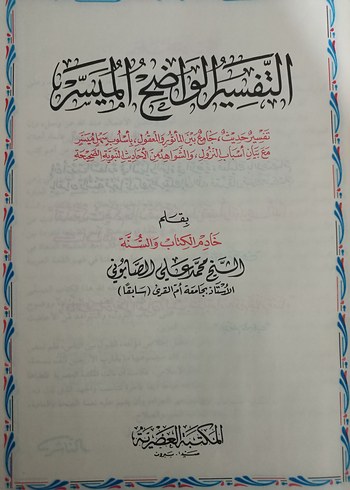 التَّفْسِيرُ الوَاضِحُ المُيَسَّر
تفسيرٌ حديثٌ، جامعٌ بين المأثور والمعقول، بأسلوب سهل مُيَسَّر
مع بيان أسباب النزول، والشواهد من الأحاديث النبوية الصحيحة
بقلم
خادم الكتاب والسُّنَّة
الشيخ محمد علي الصابوني
الأستاذ بجامعة أم القرى (سابقًا)
المكتبة العصرية
صيدا - بيروت